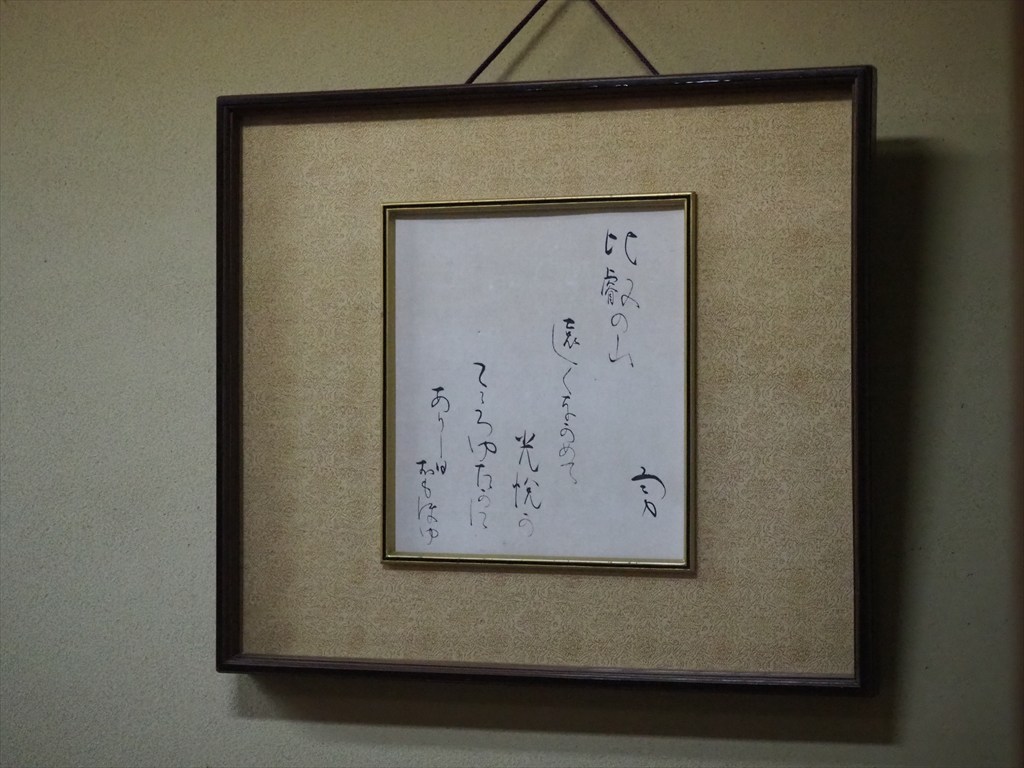 比叡の山
遠くなかめて
光悦か
こゝろゆたかに
ありし日
おもほゆ